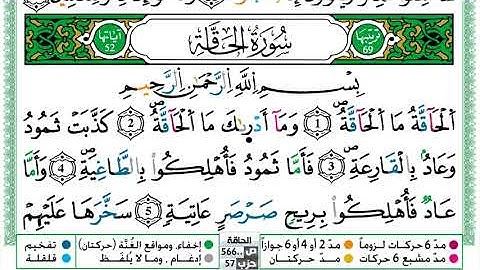 ترتيبها 69 سُورَةُ الحَاقَّة آياتها 52
بِسْمِ اللَّهِ الرَّحْمَٰنِ الرَّحِيمِ
ٱلْحَآقَّةُ مَا ٱلْحَآقَّةُ 1 وَمَآ أَدْرَىٰكَ مَا ٱلْحَآقَّةُ 2 كَذَّبَتْ ثَمُودُ
وَعَادُۢ بِٱلْقَارِعَةِ 3 فَأَمَّا ثَمُودُ فَأُهْلِكُوا۟ بِٱلطَّاغِيَةِ 4 وَأَمَّا
عَادٌ فَأُهْلِكُوا۟ بِرِيحٍ صَرْصَرٍ عَاتِيَةٍ 5 سَخَّرَهَا عَلَيْهِمْ
مدّ 6 حركات لزوماً مدّ 2 أو 4 أو 6 جوازاً الحاقة إخفاء، ومواقع الغُنَّة (حركتان) تفخيم
مدّ مشبع 6 حركات مدّ حركتان ص 566 حزب 57 إدغام، وما لا يُلفَظ قلقلة